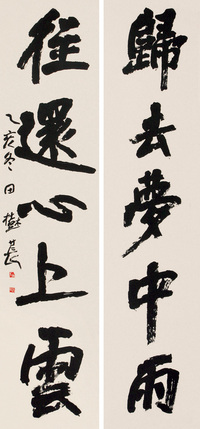 歸去夢中雨
往還心上雲
乙亥冬田樹萇